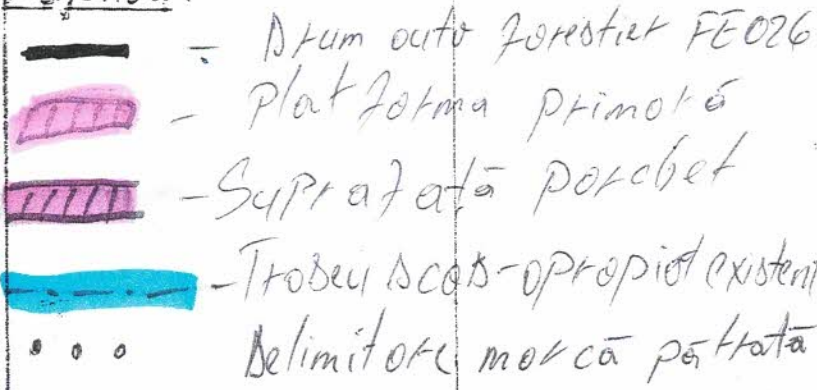 - Drum auto forestier FE026
- Platforma primară
- Suprafață parchet
- Traseu scos-apropiat existent
Delimitare marcă pătrată